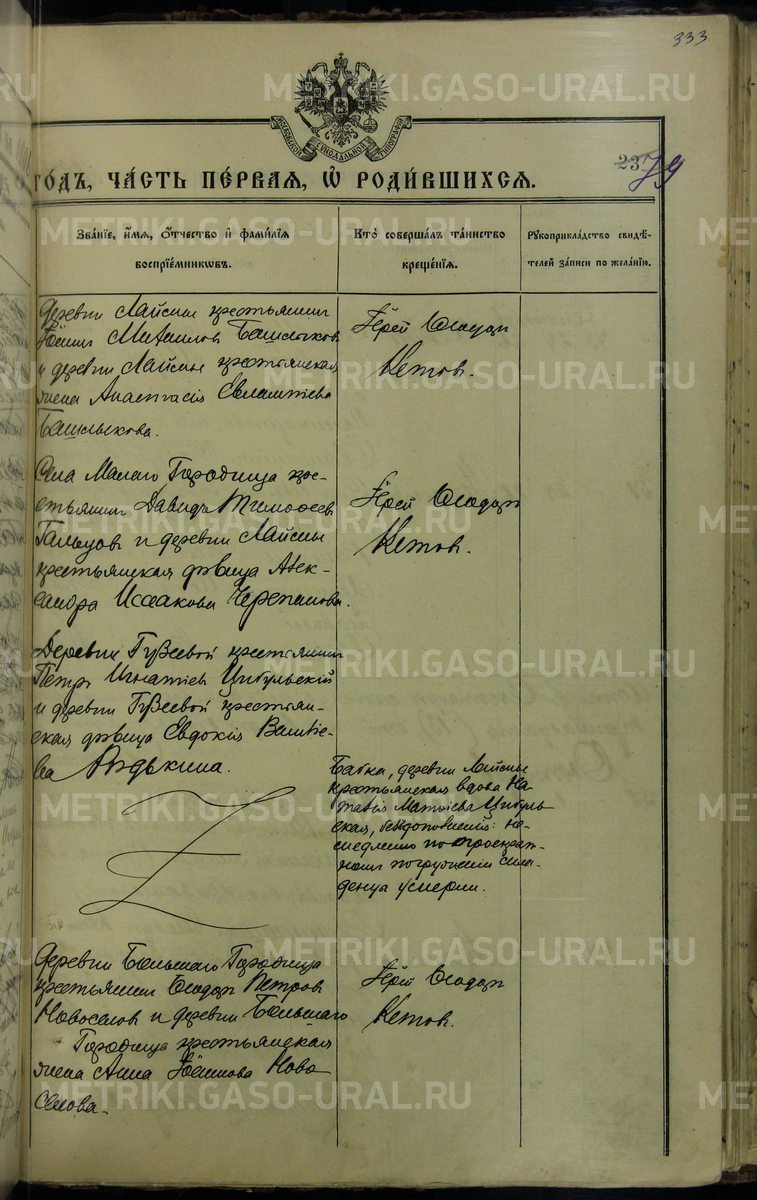 333
МОСКОВСКОЙ СѴНОДАЛЬНОЙ ТИПОГРАФІИ
237
79
ГОДЪ, ЧА́СТЬ ПЕ́РВАЯ, Ѡ҆ РОДИ́ВШИХСЯ.
Зва́нїе, и҆́мя, ѻ҆́тчество и҆ фами́лїя
воспрїе́мникѡвъ.
Кто̀ соверша́лъ та́инство
креще́нїя.
Рꙋкоприкла́дство свидѣ́-
телей за́писи по жела́нїю.
Деревни Лайсмы крестьянинъ
Михаиловъ Башлыковъ
и деревни Лайсмы крестьянская
жена Анастасія Евлампіева
Башлыкова.
Іерей Ѳеодоръ
Кетовъ.
Села Малаго Городища кре-
стьянинъ Давидъ Тимоѳеевъ
Гальцовъ и деревни Лайсмы
крестьянская дѣвица Алек-
сандра Исаакова Черепанова.
Іерей Ѳеодоръ
Кетовъ.
Деревни Гузеевой крестьянинъ
Петръ Игнатіевъ Цибульскій
и деревни Гузеевой крестьян-
ская дѣвица Евдокія Василіе-
ва
Бабка, деревни Лайсмы
крестьянская вдова На-
талія Матѳіева Цибуль-
ская,
по троекрат-
номъ погруженіи мла-
денца умерши.
Деревни Большаго Городища
крестьянинъ Ѳеодоръ Петровъ
Новоселовъ и деревни Большаго
Городища крестьянская
жена Анна Ново-
селова.
Іерей Ѳеодоръ
Кетовъ.
METRIKI.GASO-URAL.RU